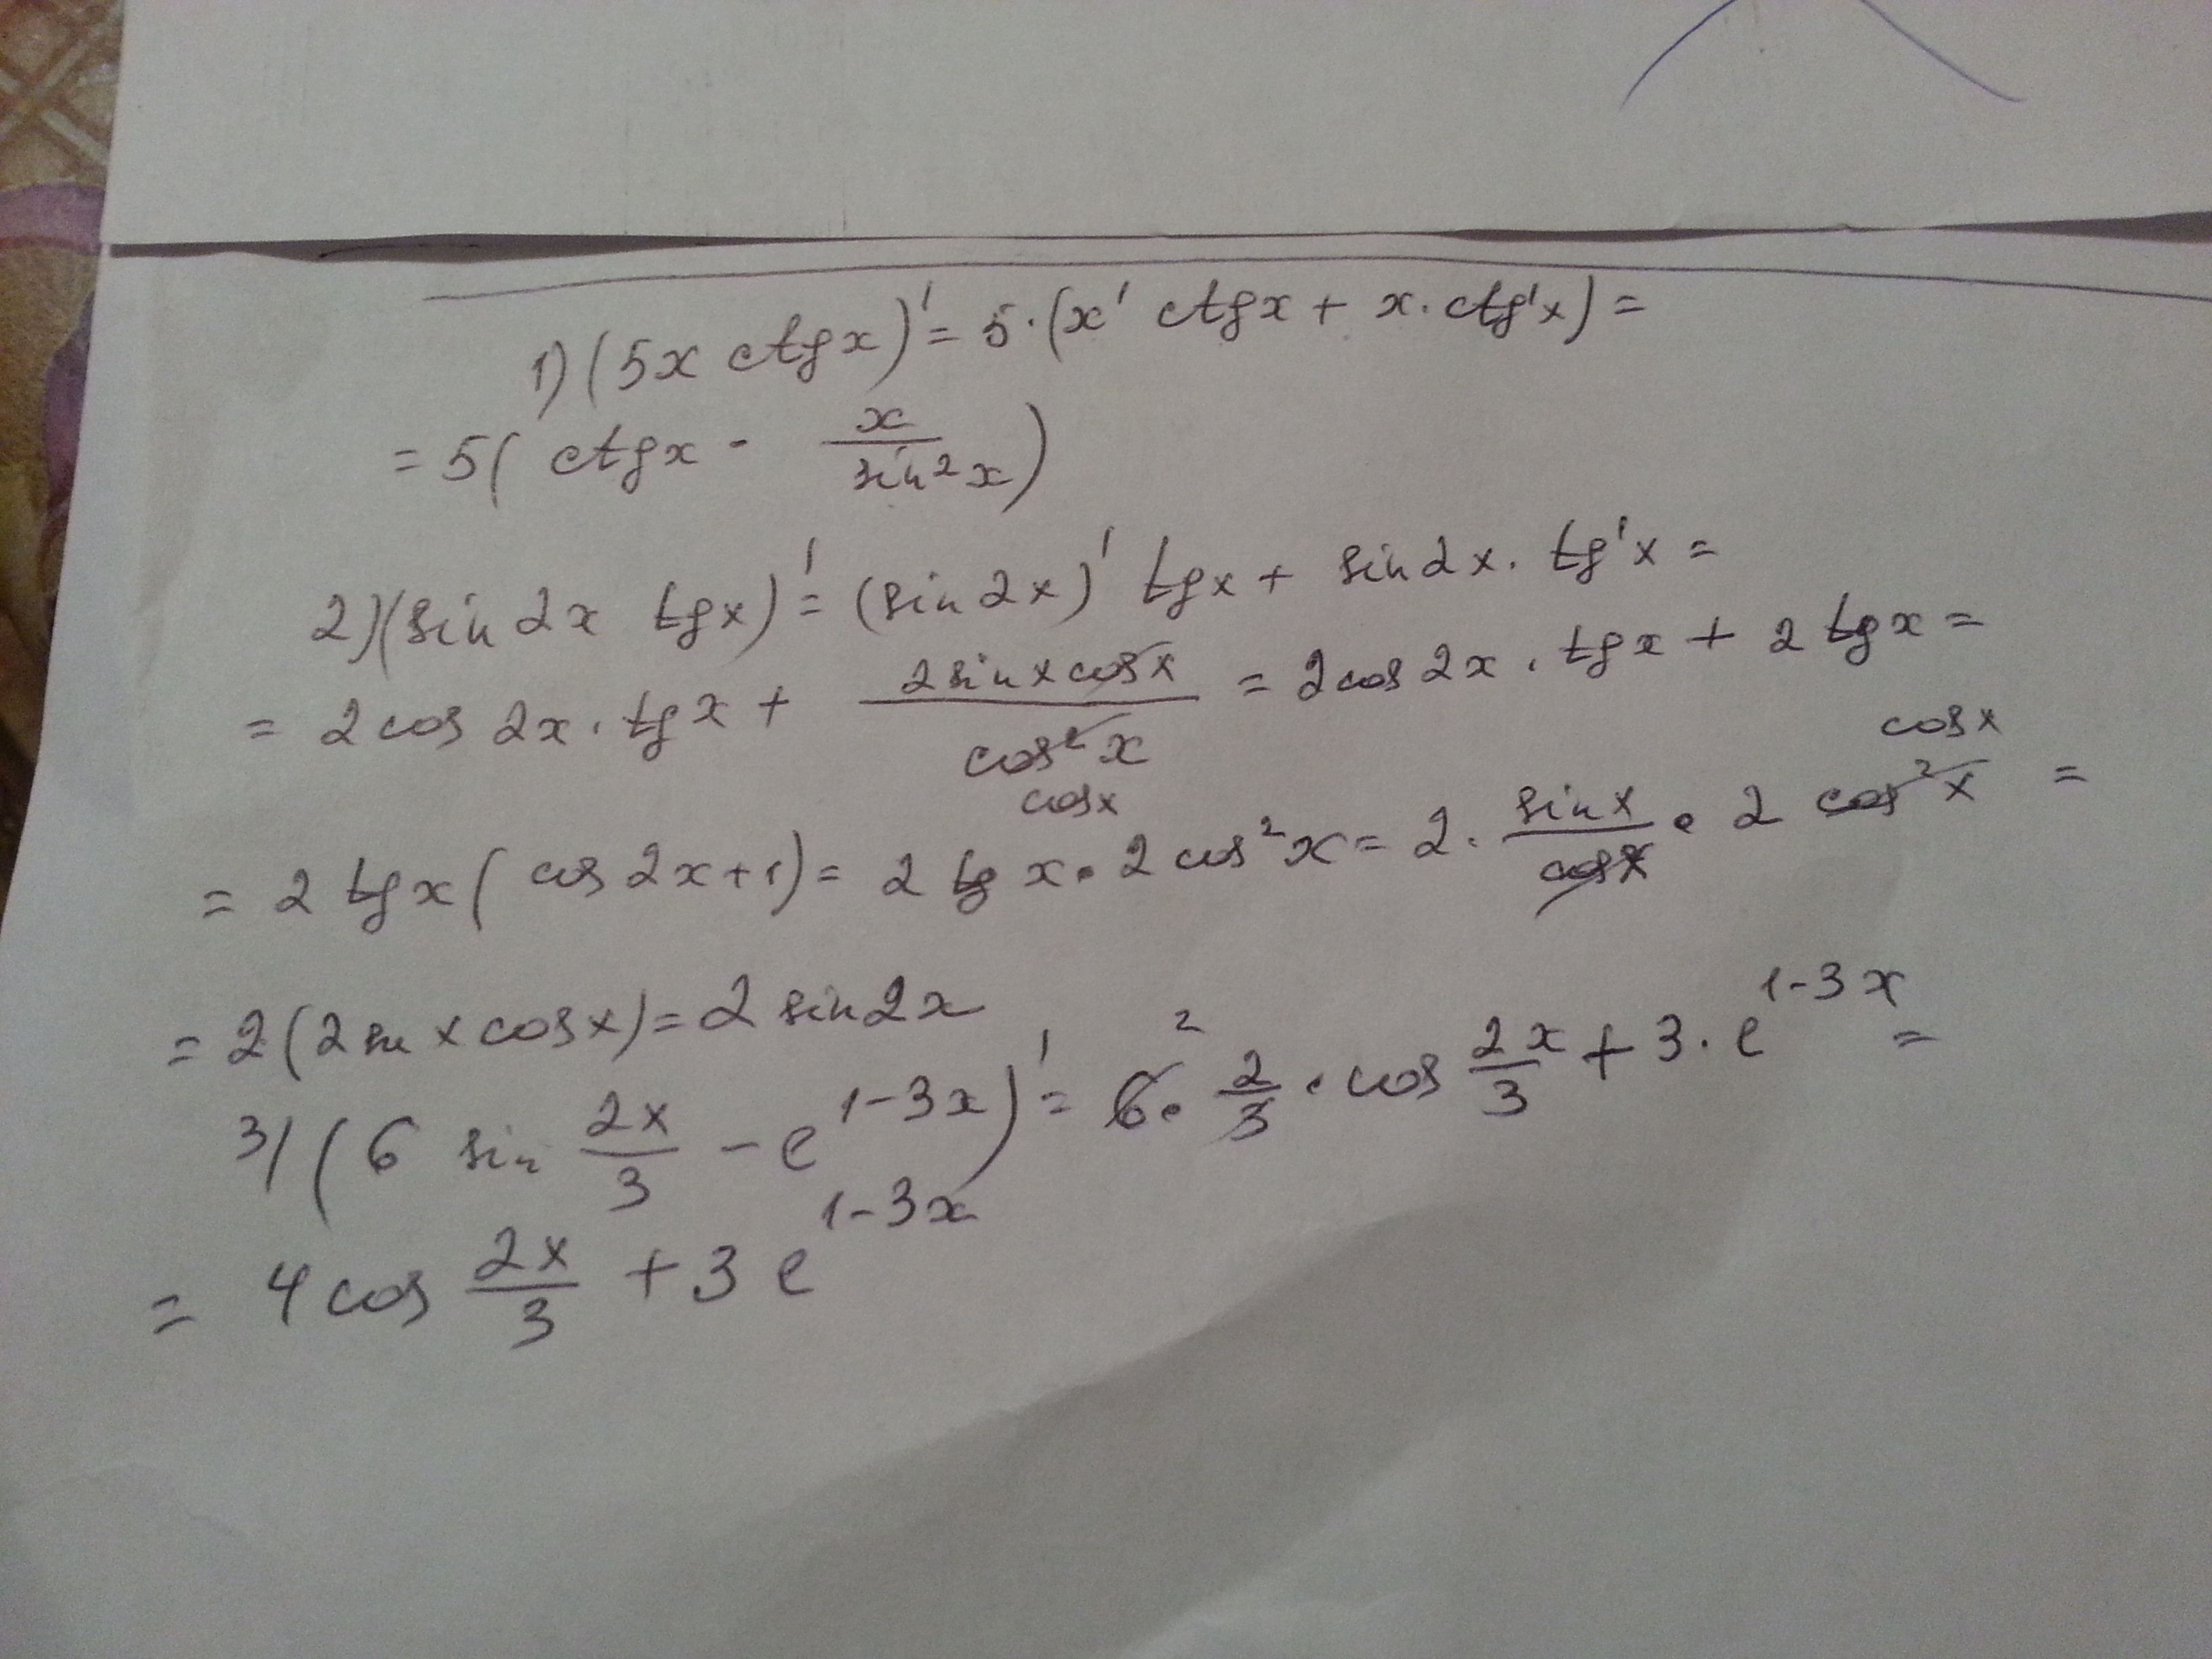 1) (5x ctgx)' = 5·(x' ctgx + x·ctg'x) =
= 5(ctgx - x/sin²x)
2) (sin2x tgx)' = (sin2x)' tgx + sin2x·tg'x =
= 2cos2x·tgx + 2sinxcosx/cos²x cosx = 2cos2x·tgx + 2tgx =
= 2tgx(cos2x+1) = 2tgx·2cos²x = 2·sinx/cosx·2cos²x cosx =
= 2(2sinxcosx) = 2sin2x
3) (6 sin 2x/3 - e^(1-3x))' = 6 2·2/3·cos 2x/3 + 3·e^(1-3x) =
= 4cos 2x/3 + 3e^(1-3x)